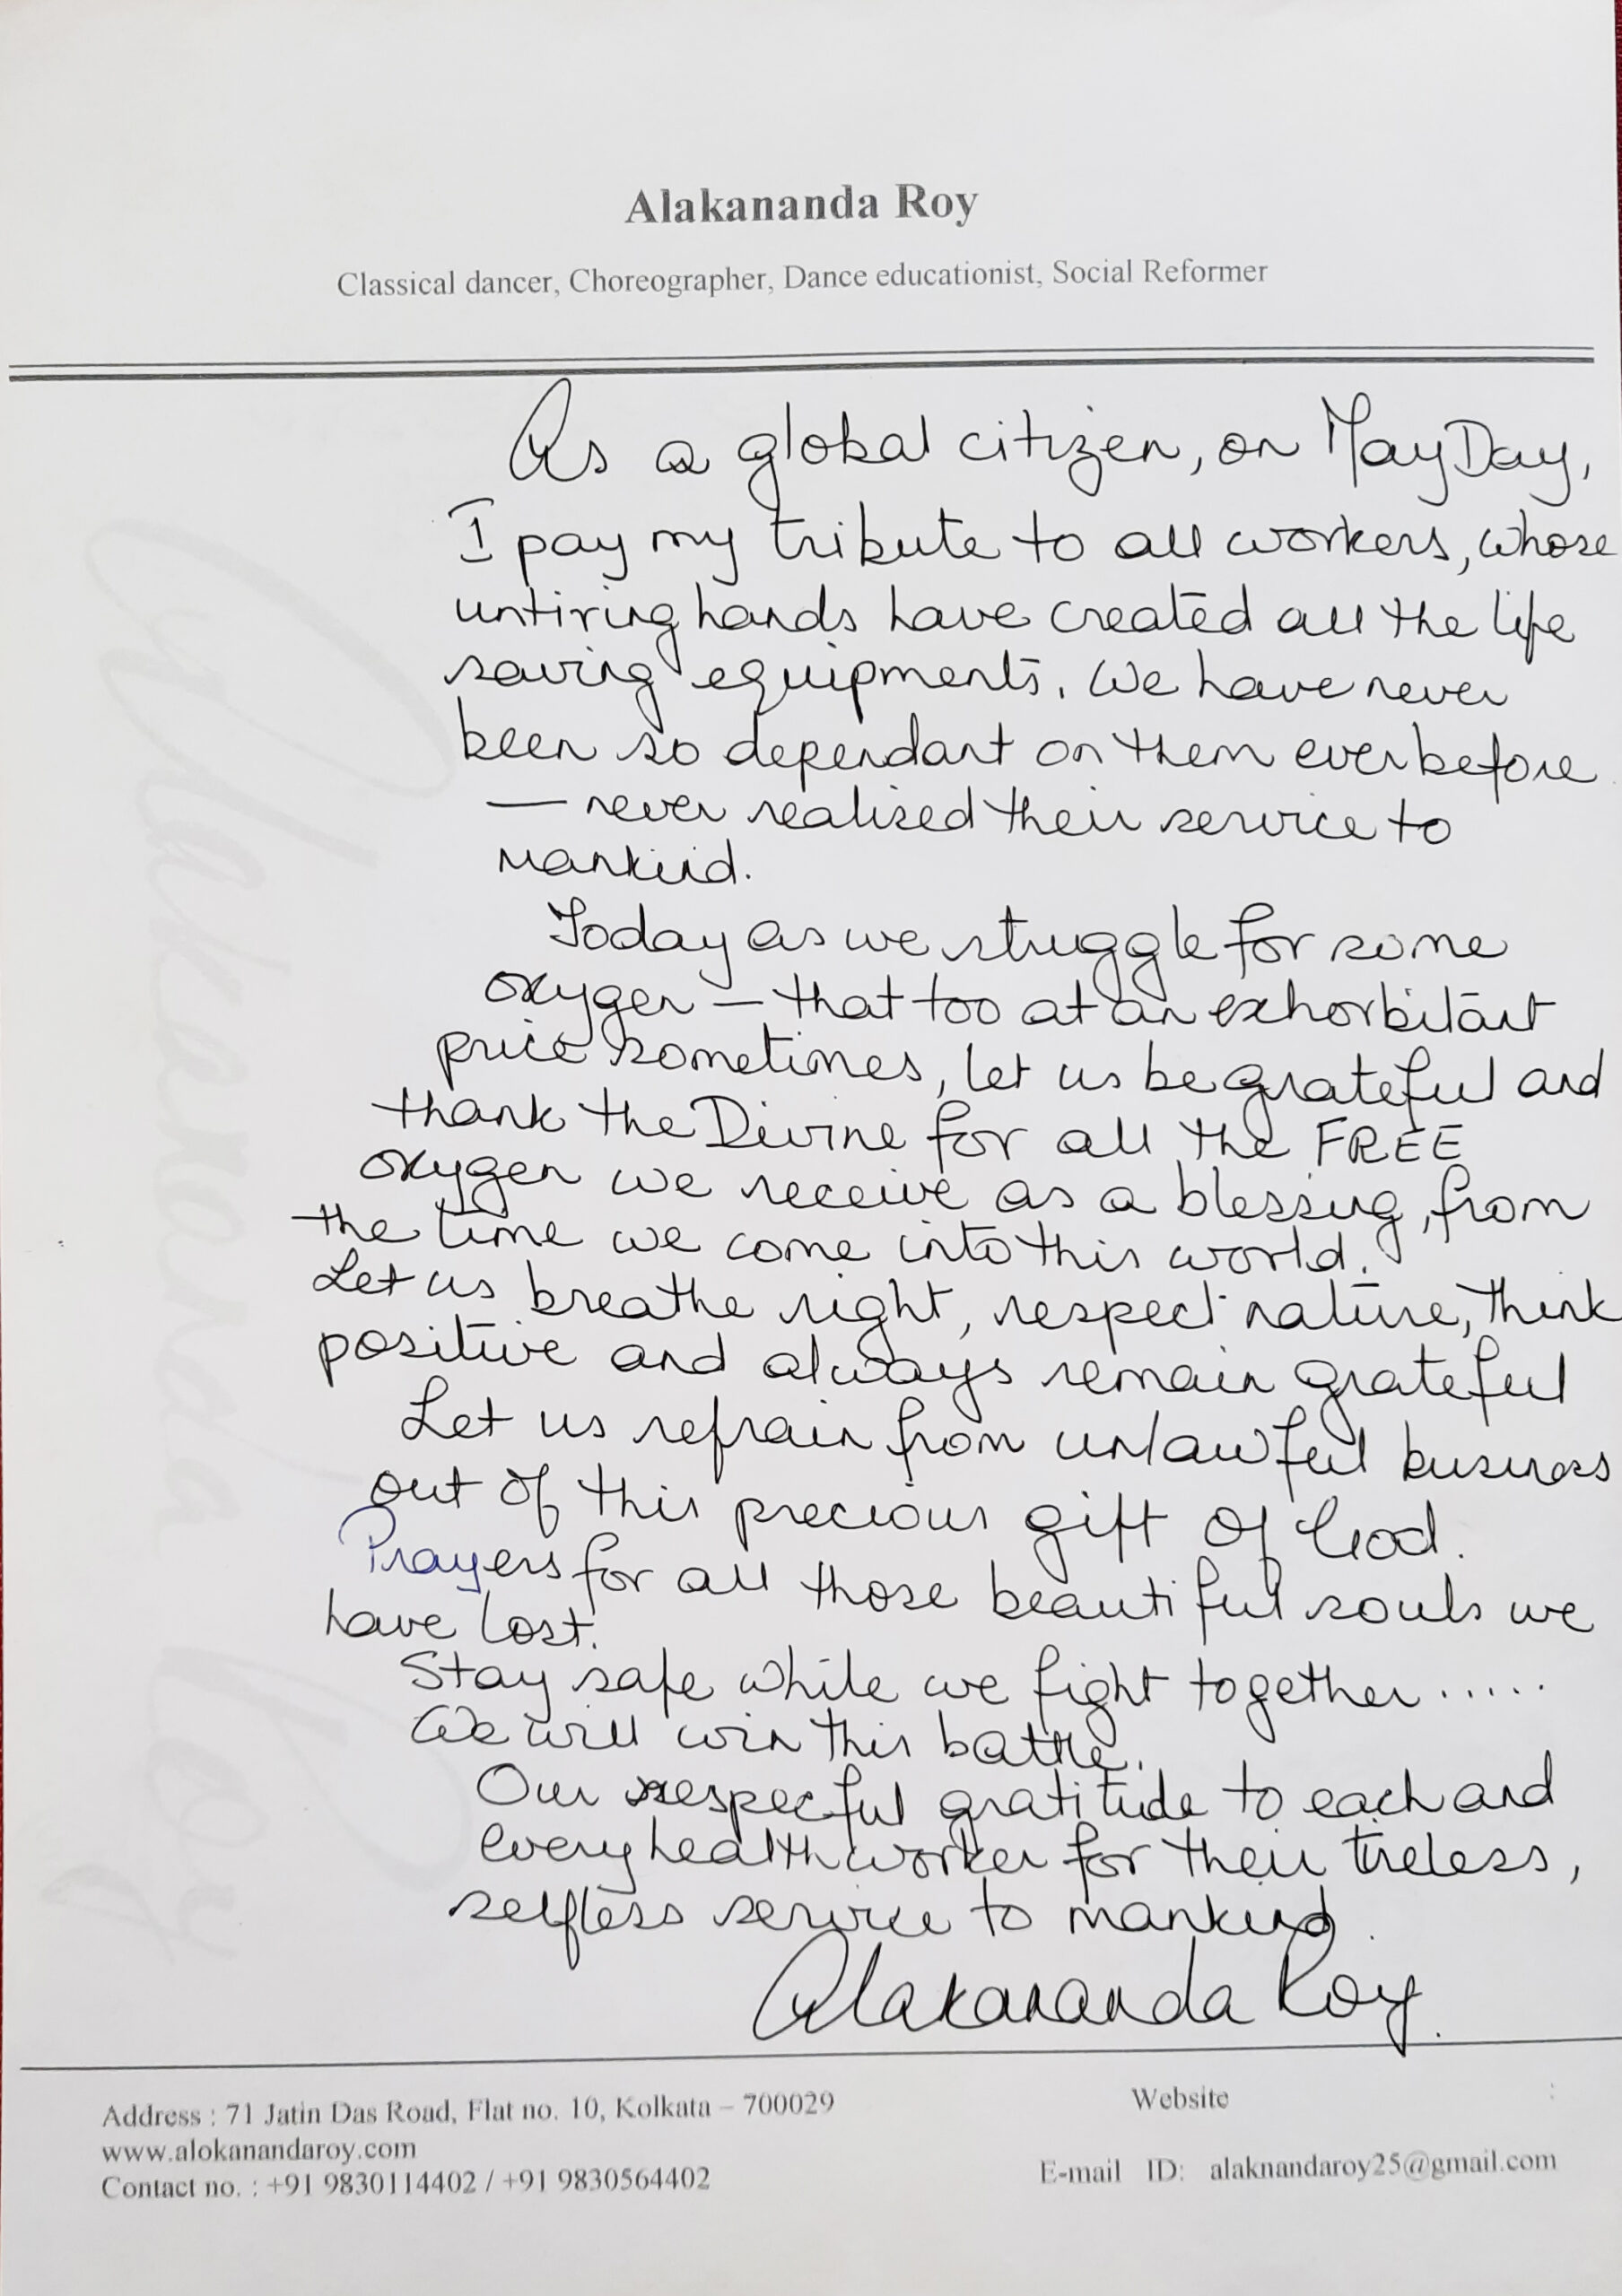 Alakananda Roy
Classical dancer, Choreographer, Dance educationist, Social Reformer
As a global citizen, on May Day,
I pay my tribute to all workers, whose
untiring hands have created all the life
saving equipments. We have never
been so dependant on them ever before
— never realised their service to
mankind.
Today as we struggle for some
oxygen — that too at an exhorbitant
price sometimes, let us be grateful and
thank the Divine for all the FREE
oxygen we receive as a blessing, from
the time we come into this world.
Let us breathe right, respect nature, think
positive and always remain grateful
Let us refrain from unlawful business
out of this precious gift of God.
Prayers for all those beautiful souls we
have lost.
Stay safe while we fight together .....
We will win this battle.
Our respecful gratitude to each and
every health worker for their tireless,
selfless service to mankind.
Alakananda Roy.
Alakananda Roy
Address : 71 Jatin Das Road, Flat no. 10, Kolkata – 700029
Website :
www.alokanandaroy.com
E-mail ID: alaknandaroy25@gmail.com
Contact no. : +91 9830114402 / +91 9830564402